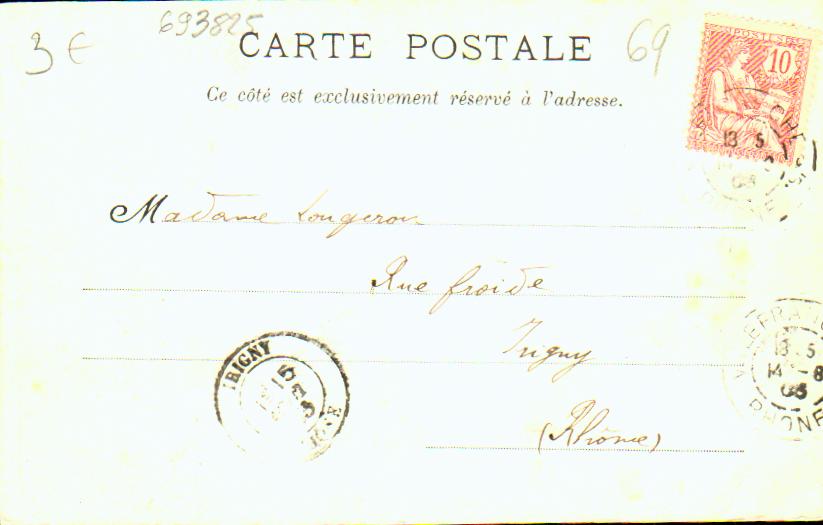 693825
3 €
CARTE POSTALE
69
Ce côté est exclusivement réservé à l'adresse.
POSTES
10
CHE
13 5
03
Madame Lougeron
Rue froide
Irigny
(Rhône)
IRIGNY
RHONE
LEFRANC
13 5
14 8
03
RHONE